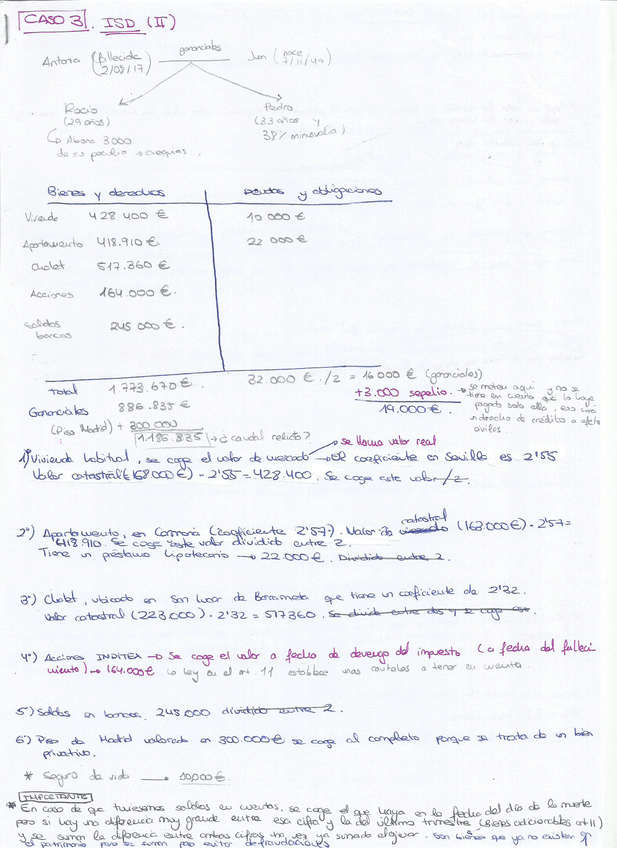 CASO 3. ISD (II)
gananciales
Antonia (fallecida 2/09/17)
Juan (nace 7/11/49)
Rocío (29 años)
Pedro (33 años y 38% minusvalía)
↳ Abona 3000
de su peculio → exequias.
Bienes y derechos
Deudas y obligaciones
Vivienda 428.400 €
10 000 €
Apartamento 418.910 €
22 000 €
Chalet 517.360 €
Acciones 164.000 €.
Saldos bancos 245 000 €.
Total 1.773.670 €.
32.000 € /2 = 16 000 € (gananciales)
Gananciales 886.835 €
+3.000 sepelio. → se meten aquí y no se tiene en cuenta que lo haya pagado solo ella, eso será un derecho de crédito a efectos civiles
(Piso Madrid) + 300 000
19.000 €.
1.186.835 → ¿caudal relicto?
→ se llama valor real
1º) Vivienda habitual, se coge el valor de mercado → el coeficiente en Sevilla es 2'55
Valor catastral (168000€) · 2'55 = 428.400. Se coge este valor /2.
2º) Apartamento, en Carmona (coeficiente 2'57). Valor catastral (163.000€) · 2'57=
418.910. Se coge este valor dividido entre 2.
Tiene un préstamo hipotecario → 22.000€. Dividido entre 2.
3º) Chalet, ubicado en San Lucar de Barrameda que tiene un coeficiente de 2'32.
Valor catastral (223.000) · 2'32 = 517360. Se divide entre dos y se coge
4º) Acciones INDITEX → Se coge el valor a fecha de devengo del impuesto (a fecha del falleci
miento) → 164.000€ La ley en el art. 11 establece unas cautelas a tener en cuenta
5º) Saldos en bancos. 245.000 dividido entre 2.
6º) Piso de Madrid valorado en 300.000€ se coge al completo porque se trata de un bien
privativo.
* Seguro de vida → 10,000€.
IMPORTANTE
* En caso de que tuviésemos saldos en cuentas, se coge el que haya en la fecha del día de la muerte
pero si hay una diferencia muy grande entre esa cifra y la del último trimestre, (bienes adicionables art 11)
y se suma la diferencia entre ambas cifras una vez ya sumado el ajuar. Son bienes que ya no existen en
el patrimonio pero se suman para evitar defraudaciones